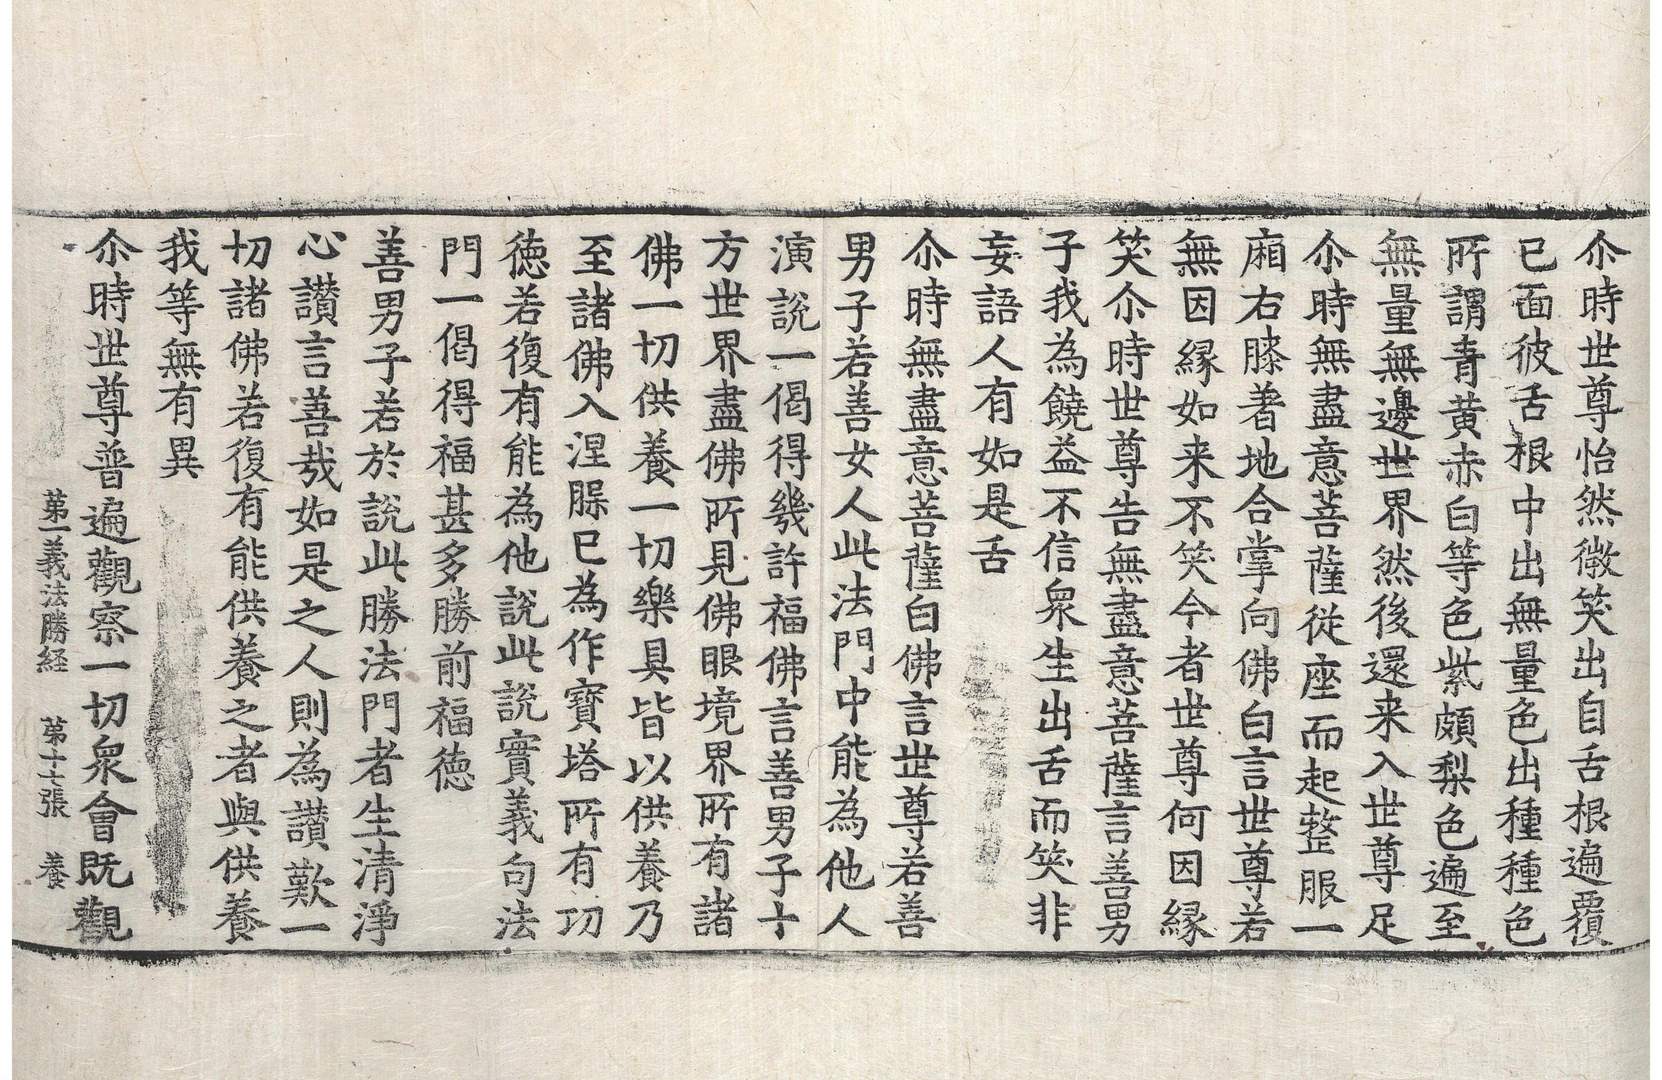 尒時世尊怡然微笑出自舌根遍覆
已面彼舌根中出無量色出種種色
所謂青黄赤白等色紫頗梨色遍至
無量無邊世界然後還来入世尊足
尒時無盡意菩薩従座而起整服一
廂右膝著地合掌向佛白言世尊若
無因縁如来不笑今者世尊何因縁
笑尒時世尊告無盡意菩薩言善男
子我為饒益不信衆生出舌而笑非
妄語人有如是舌
尒時無盡意菩薩白佛言世尊若善
男子若善女人此法門中能為他人
演説一偈得幾許福佛言善男子十
方世界盡佛所見佛眼境界所有諸
佛一切供養一切樂具皆以供養乃
至諸佛入涅槃已為作寶塔所有功
徳若復有能為他説此説實義句法
門一偈得福甚多勝前福徳
善男子若於説此勝法門者生清淨
心讃言善哉如是之人則為讃歎一
切諸佛若復有能供養之者與供養
我等無有異
尒時世尊普遍觀察一切衆會既觀
第一義法勝経 第十七張 養